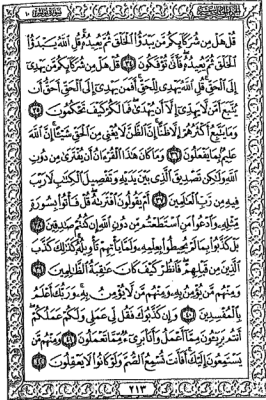 قُلْ هَلْ مِن شُرَكَآئِكُم مَّن يَبْدَؤُا۟ ٱلْخَلْقَ ثُمَّ يُعِيدُهُۥ قُلِ ٱللَّهُ يَبْدَؤُا۟
ٱلْخَلْقَ ثُمَّ يُعِيدُهُۥ فَأَنَّىٰ تُؤْفَكُونَ ٣٤ قُلْ هَلْ مِن شُرَكَآئِكُم مَّن يَهْدِىٓ
إِلَى ٱلْحَقِّ قُلِ ٱللَّهُ يَهْدِى لِلْحَقِّ أَفَمَن يَهْدِىٓ إِلَى ٱلْحَقِّ أَحَقُّ أَن
يُتَّبَعَ أَمَّن لَّا يَهِدِّىٓ إِلَّآ أَن يُهْدَىٰ فَمَا لَكُمْ كَيْفَ تَحْكُمُونَ ٣٥
وَمَا يَتَّبِعُ أَكْثَرُهُمْ إِلَّا ظَنًّا إِنَّ ٱلظَّنَّ لَا يُغْنِى مِنَ ٱلْحَقِّ شَيْـًٔا إِنَّ ٱللَّهَ
عَلِيمٌۢ بِمَا يَفْعَلُونَ ٣٦ وَمَا كَانَ هَٰذَا ٱلْقُرْءَانُ أَن يُفْتَرَىٰ مِن دُونِ
ٱللَّهِ وَلَٰكِن تَصْدِيقَ ٱلَّذِى بَيْنَ يَدَيْهِ وَتَفْصِيلَ ٱلْكِتَٰبِ لَا رَيْبَ
فِيهِ مِن رَّبِّ ٱلْعَٰلَمِينَ ٣٧ أَمْ يَقُولُونَ ٱفْتَرَىٰهُ قُلْ فَأْتُوا۟ بِسُورَةٍ
مِّثْلِهِۦ وَٱدْعُوا۟ مَنِ ٱسْتَطَعْتُم مِّن دُونِ ٱللَّهِ إِن كُنتُمْ صَٰدِقِينَ ٣٨
بَلْ كَذَّبُوا۟ بِمَا لَمْ يُحِيطُوا۟ بِعِلْمِهِۦ وَلَمَّا يَأْتِهِمْ تَأْوِيلُهُۥ كَذَٰلِكَ كَذَّبَ
ٱلَّذِينَ مِن قَبْلِهِمْ فَٱنظُرْ كَيْفَ كَانَ عَٰقِبَةُ ٱلظَّٰلِمِينَ ٣٩
وَمِنْهُم مَّن يُؤْمِنُ بِهِۦ وَمِنْهُم مَّن لَّا يُؤْمِنُ بِهِۦ وَرَبُّكَ أَعْلَمُ
بِٱلْمُفْسِدِينَ ٤٠ وَإِن كَذَّبُوكَ فَقُل لِّى عَمَلِى وَلَكُمْ عَمَلُكُمْ
أَنتُم بَرِيٓـُٔونَ مِمَّآ أَعْمَلُ وَأَنَا۠ بَرِىٓءٌ مِّمَّا تَعْمَلُونَ ٤١ وَمِنْهُم مَّن
يَسْتَمِعُونَ إِلَيْكَ أَفَأَنتَ تُسْمِعُ ٱلصُّمَّ وَلَوْ كَانُوا۟ لَا يَعْقِلُونَ ٤٢
٢١٣